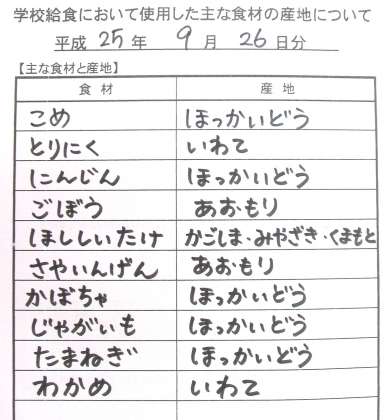 学校給食において使用した主な食材の産地について
平成 25 年 9 月 26 日分
【主な食材と産地】
食 材 産 地
こめ ほっかいどう
とりにく いわて
にんじん ほっかいどう
ごぼう あおもり
ほししいたけ かごしま・みやざき・くまもと
さやいんげん あおもり
かぼちゃ ほっかいどう
じゃがいも ほっかいどう
たまねぎ ほっかいどう
わかめ いわて